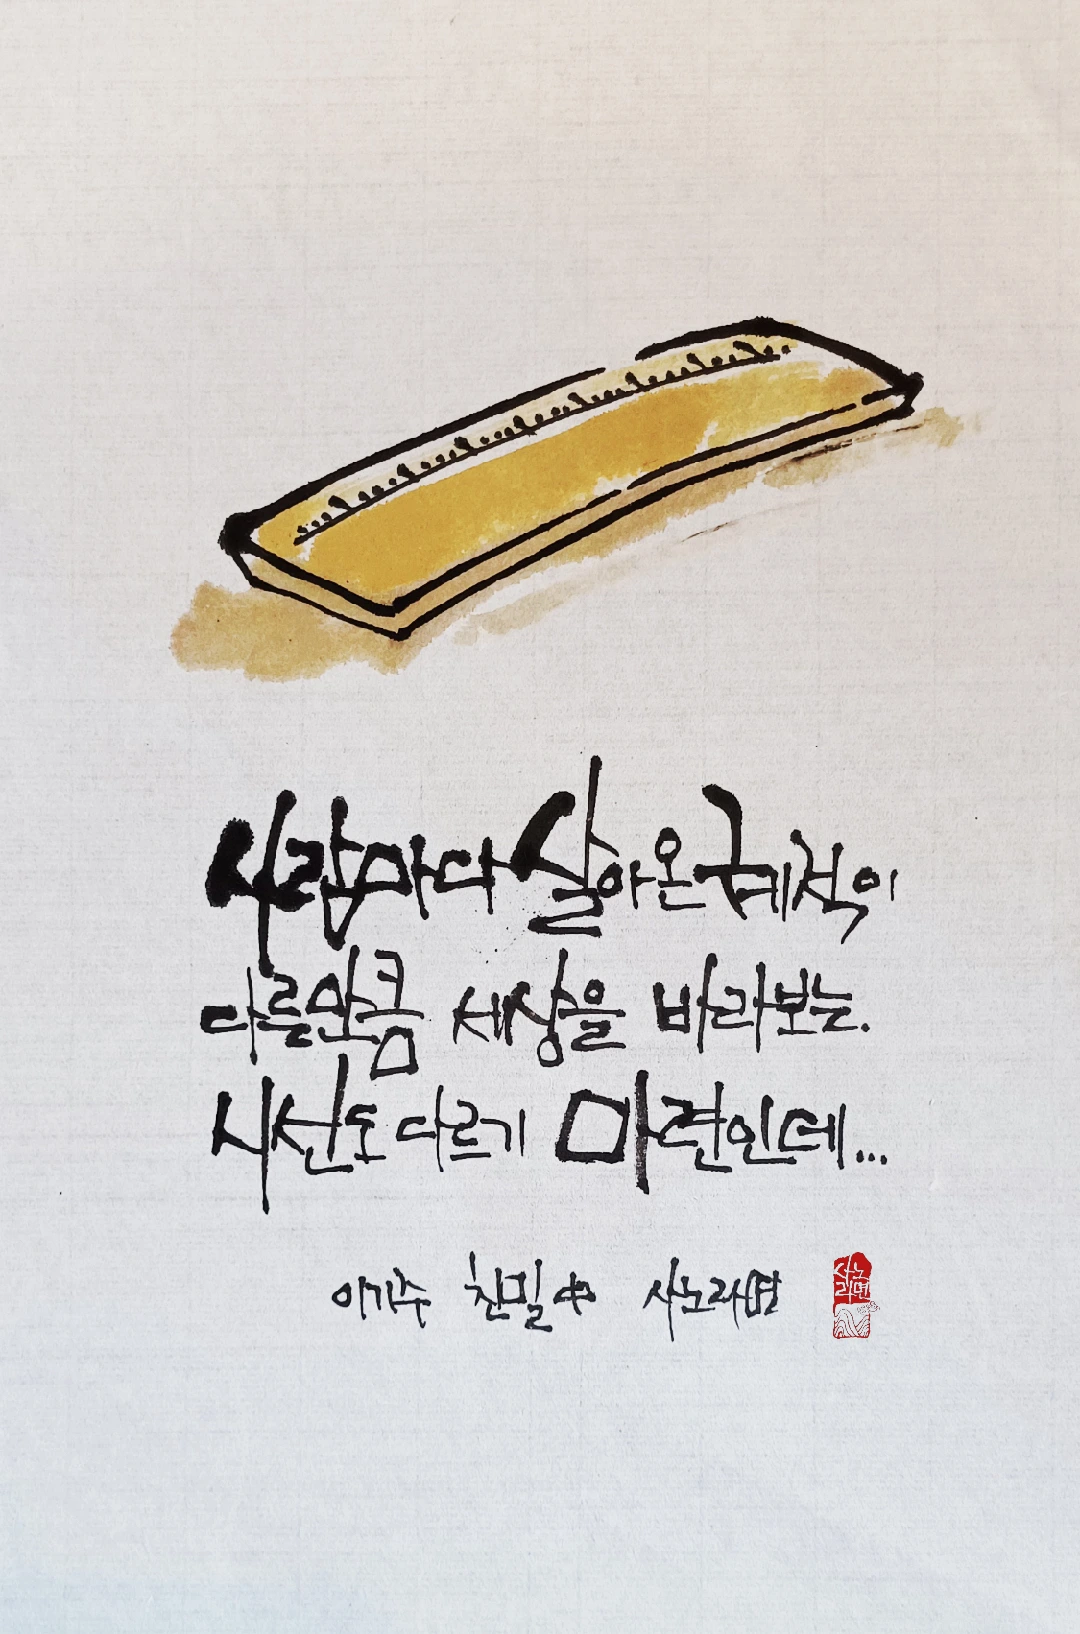 사람마다 살아온 궤적이
다른만큼 세상을 바라보는.
시선도 다르기 마련인데...
이기주 친밀 中 사노라면
사노
라면